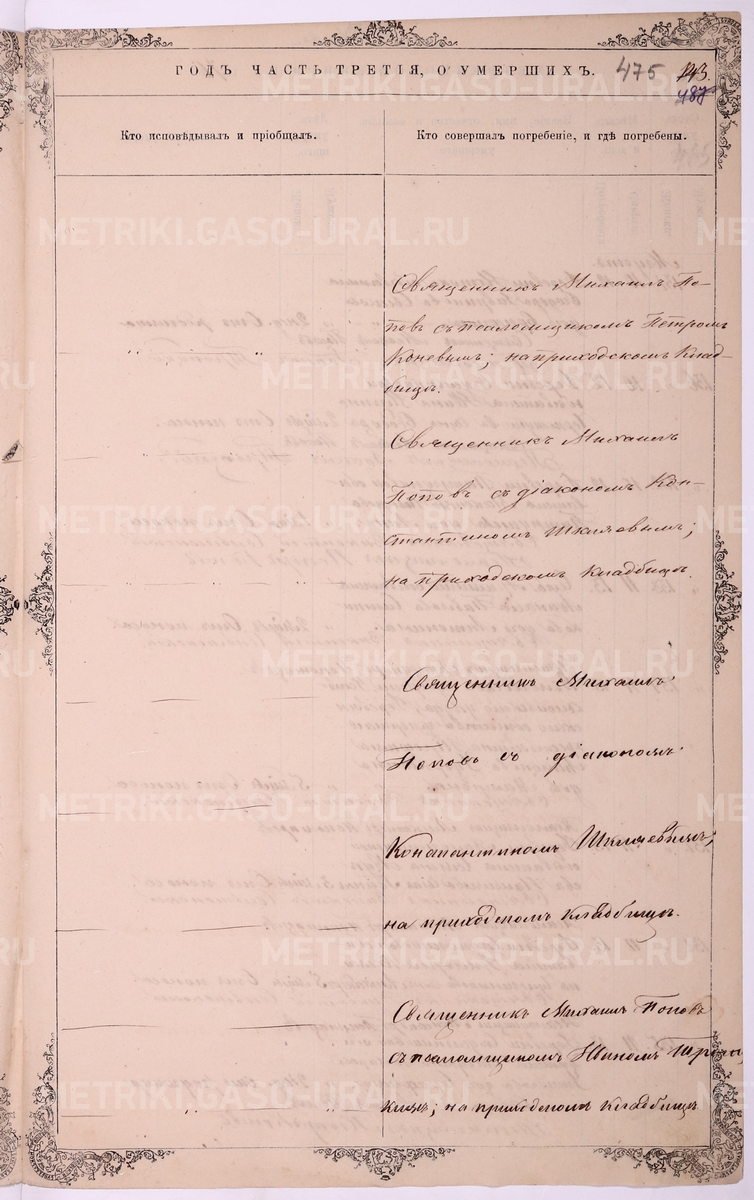 ГОДЪ ЧАСТЬ ТРЕТІЯ, О УМЕРШИХЪ. 475 143.
487
Кто исповѣдывалъ и пріобщалъ.
Кто совершалъ погребеніе, и гдѣ погребены.
METRIKI.GASO-URAL.RU
Священникъ Михаилъ По-
повъ съ псаломщикомъ Петромъ
Коневымъ; на приходскомъ клад-
бищѣ.
Священникъ Михаилъ
Поповъ съ діакономъ Кон-
стантиномъ Шкляевымъ;
на приходскомъ кладбищѣ.
Священникъ Михаилъ
Поповъ съ діакономъ
Константиномъ Шкляевымъ;
на приходскомъ кладбищѣ.
Священникъ Михаилъ Поповъ
съ псаломщикомъ
на приходскомъ кладбищѣ